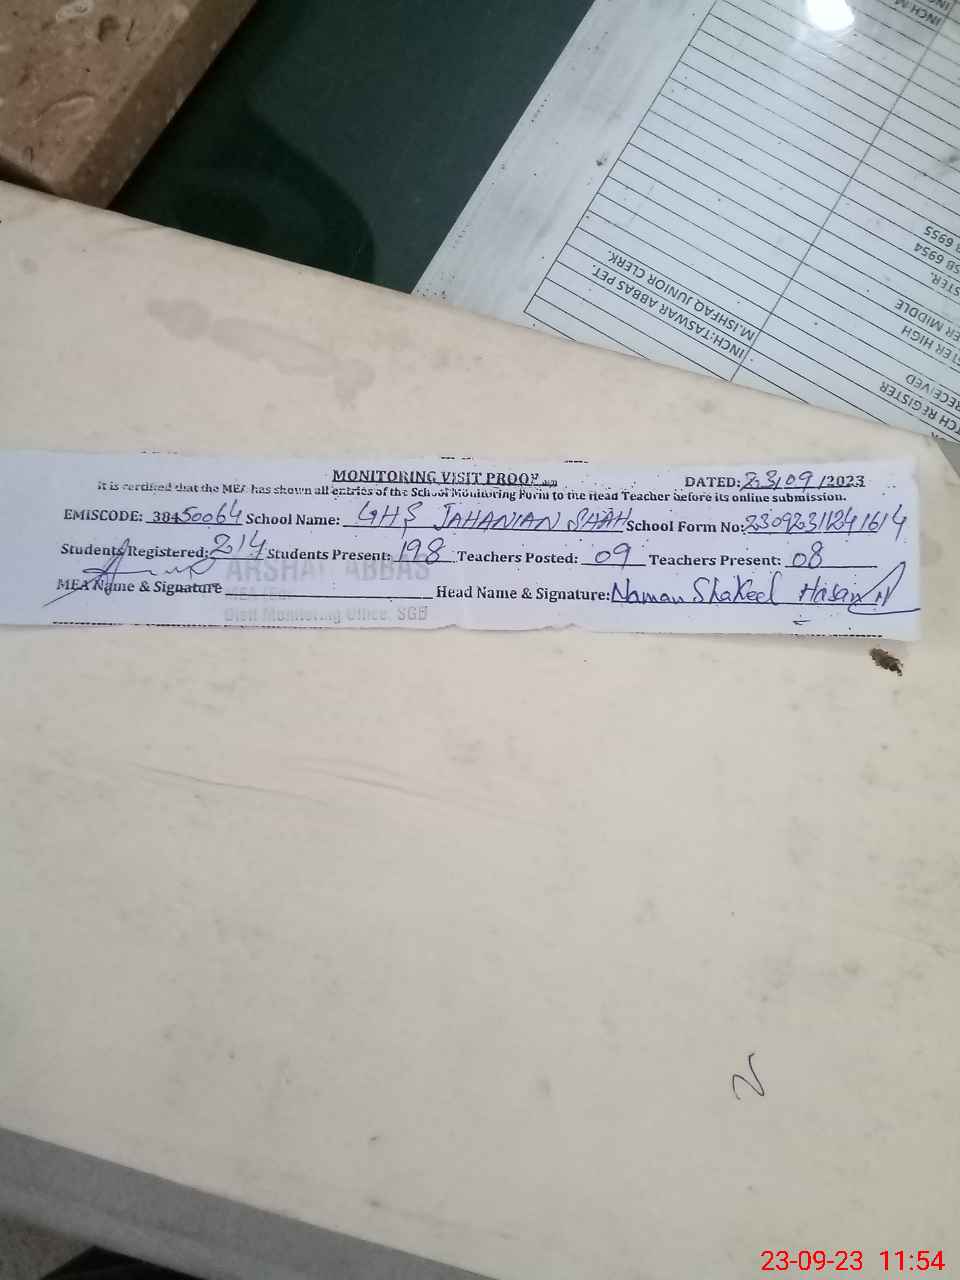 MONITORING VISIT PROOF
DATED: 23/09/2023
It is certified that the MEA has shown all entries of the School Monitoring Form to the Head Teacher before its online submission.
EMISCODE: 38450064 School Name: GHS JAHANIAN SHAH School Form No: 23092311241614
Students Registered: 214 Students Present: 198 Teachers Posted: 09 Teachers Present: 08
ARSHAD ABBAS
MEA Name & Signature Head Name & Signature: Naman Shakeel Hasan
Distt Monitoring Office, SGD
INCH:TASWAR ABBAS PET.
M.ISHFAQ JUNIOR CLERK.
RECEIVED
6954
6955
HIGH
MIDDLE
REGISTER
23-09-23 11:54